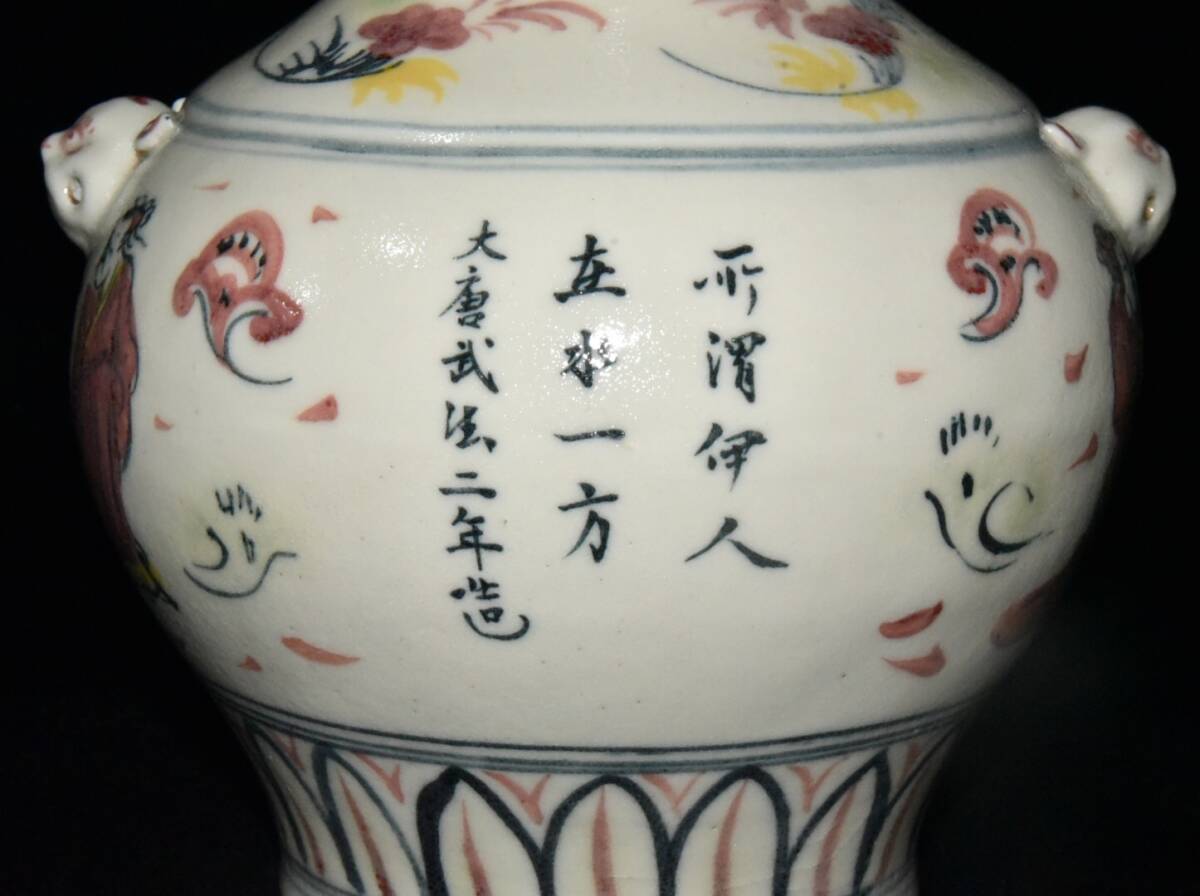 所渭伊人
在水一方
大唐武法二年造